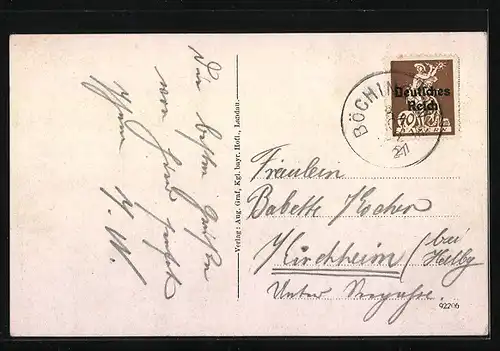 Die besten Grüßen
von hier sendet
Ihnen K. W.
Verlag: Aug. Graf, Kgl. bayr. Hofl., Landau.
BÖCHIN
21
Deutsches
Reich
40
BAYERN
Fräulein
Babette Kocher
Kirchheim
bei
Unter
92206